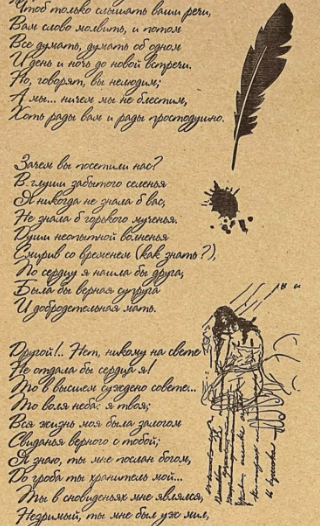 Чтоб только слышать ваши речи,
Вам слово молвить, и потом
Все думать, думать об одном
И день и ночь до новой встречи.
Но, говорят, вы нелюдим;
А мы... ничем мы не блестим,
Хоть рады вам и рады простодушно.
Зачем вы посетили нас?
В глуши забытого селенья
Я никогда не знала б вас,
Не знала б горького мученья.
Души неопытной волненья
Смирив со временем (как знать?),
По сердцу я нашла бы друга,
Была бы верная супруга
И добродетельная мать.
Другой!.. Нет, никому на свете
Не отдала бы сердца я!
То в высшем суждено совете...
То воля неба: я твоя;
Вся жизнь моя была залогом
Свиданья верного с тобой;
Я знаю, ты мне послан богом,
До гроба ты хранитель мой...
Ты в сновиденьях мне являлся,
Незримый, ты мне был уж мил,